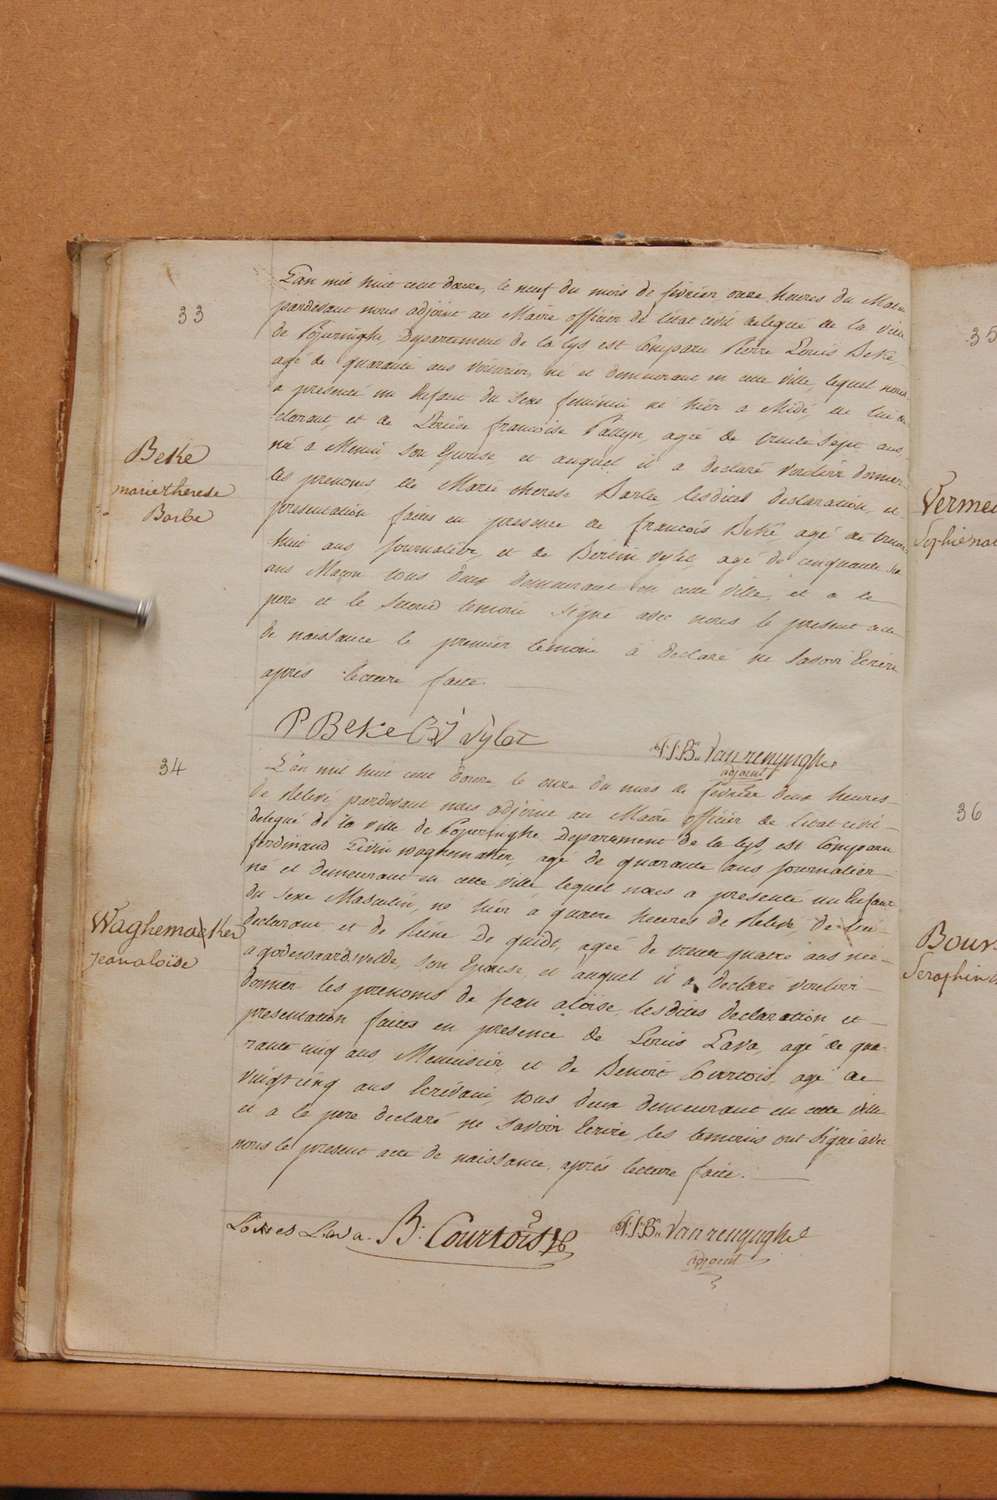 33
L'an mil huit cent douze, le neuf du mois de fevrier onze heures du Matin
pardevant nous adjoint au Maire officier de l'etat civil delegué de la ville
de Poperinghe Departement de la Lys est Comparu Pierre Louis Beké,
agé de quarante ans voiturier, né et demeurant en cette ville, lequel nous
a presenté un Enfant du sexe feminin né hier a Midi, de lui de
clarant, et de Louise francoise Pattyn, agée de trente sept ans,
née a Menin son Epouse, et auquel il a declaré vouloir donner
les prenoms de Marie therese Barbe lesdites declaration, et
presentation faites en presence de francois Beké agé de trente
huit ans journalier, et de Bertin vylet agé de cinquante six
ans Maçon tous deux demeurant en cette ville, et a le
pere et le second temoin signé avec nous le present acte
de naissance le premier temoin à declaré ne savoir Ecrire
apres lecture faite.
Beké
marie therese
Barbe
P Beke B J Vylet
P.J.Bte Van renynghe
adjoint
34
L'an mil huit cent douze, le onze du mois de fevrier deux heures
de Relevé, pardevant nous adjoint au Maire officier de l'etat civil
delegué de la ville de Poperinghe Departement de la Lys, est Comparu
ferdinand Livin waghemaker, agé de quarante ans journalier
né et demeurant en cette ville, lequel nous a presenté un Enfant
du sexe Masculin, né hier à quatre heures de Relevé, de lui
declarant, et de de quidt, agée de trente quatre ans née
a godewaardsvelde, son Epouse, et auquel il a declaré vouloir
donner les prenoms de jean aloise, lesdites declaration et
presentation faites en presence de Louis Lava, agé de qua
rante cinq ans Menuisier, et de Benoit Courtois, agé de
vingt cinq ans Ecrivain, tous deux demeurant en cette ville
et a le pere declaré ne savoir Ecrire, les temoins ont signé avec
nous le present acte de naissance, apres lecture faite.
Waghemaeker
jean aloise
Lowies Lava. B: Courtois
P.J.Bte Van renynghe
adjoint
35
Verme
36
Bouv
Seraphin